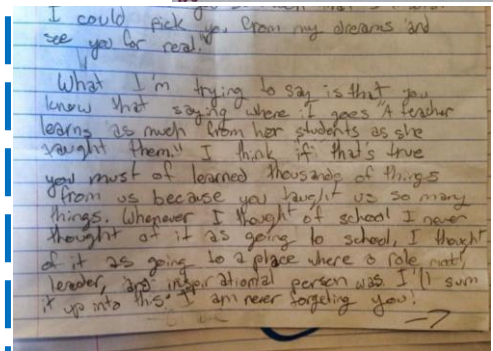 I could pick you from my dreams and
see you for real."
What I'm trying to say is that you
know that saying where it goes "A teacher
learns as much from her students as she
taught them." I think if that's true
you must of learned thousands of things
from us because you taught us so many
things. Whenever I thought of school I never
thought of it as going to school, I thought
of it as going to a place where a role model,
leader, and inspirational person was. I'll sum
it up into this. I am never forgeting you!